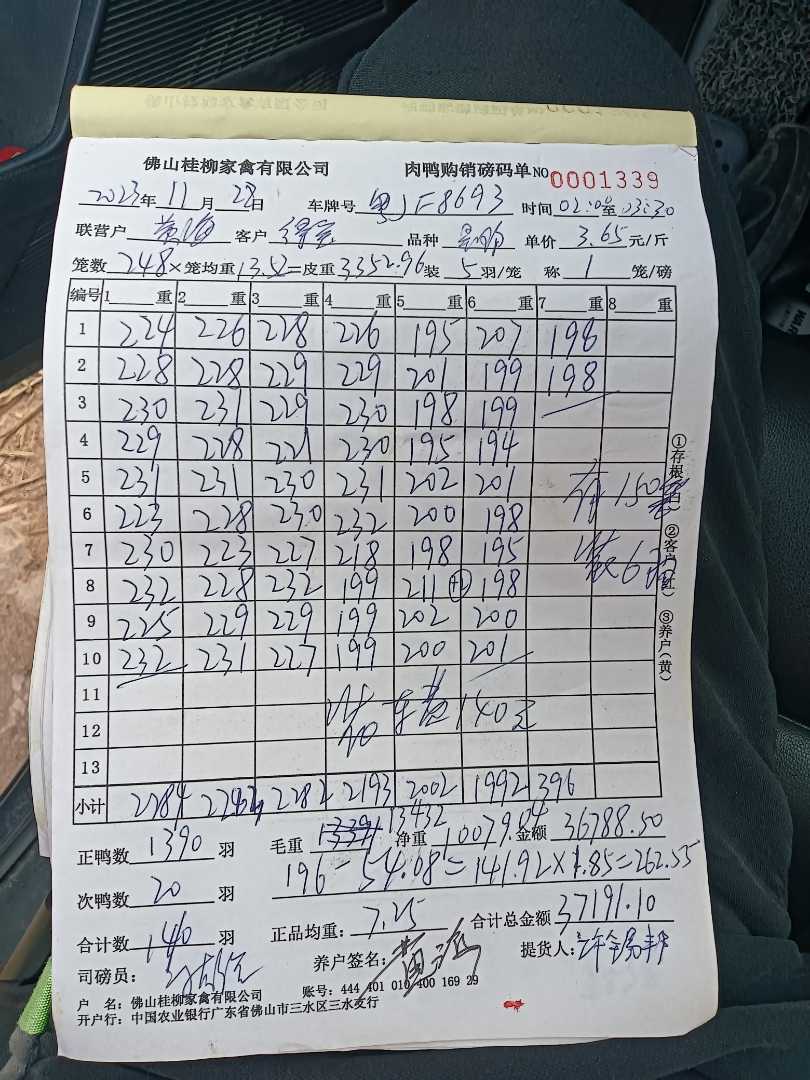 佛山桂柳家禽有限公司 肉鸭购销磅码单 NO 0001339
2023年 11月 28日 车牌号 粤J F8693 时间 02:00至03:30
联营户 黄海 客户 品种 单价 3.65 元/斤
笼数 248 ×笼均重 13.52 =皮重 3352.96 装 5 羽/笼 称 1 笼/磅
编号 1 重 2 重 3 重 4 重 5 重 6 重 7 重 8 重
1 224 226 228 226 195 207 198
2 228 228 229 229 201 199 198
3 230 231 229 230 198 199
4 229 228 221 230 195 194
5 231 231 230 231 202 201
6 223 228 230 232 200 198
7 230 223 227 218 198 195
8 232 228 232 199 211 +1 198
9 225 229 229 199 202 200
10 232 231 227 199 200 201
11
12
13
有150
装6羽
车费140元
小计 2284 2282 2193 2002 1992 396
①存根(白) ②客户(红) ③养户(黄)
正鸭数 1390 羽 毛重 13432 净重 10079.04 金额 36788.50
196-54.08=141.92×1.85=262.55
次鸭数 20 羽
合计数 140 羽 正品均重: 7.25 合计总金额 37191.10
司磅员: 养户签名: 黄海 提货人:
户 名: 佛山桂柳家禽有限公司 账号: 444 401 010 400 169 29
开户行: 中国农业银行广东省佛山市三水区三水支行